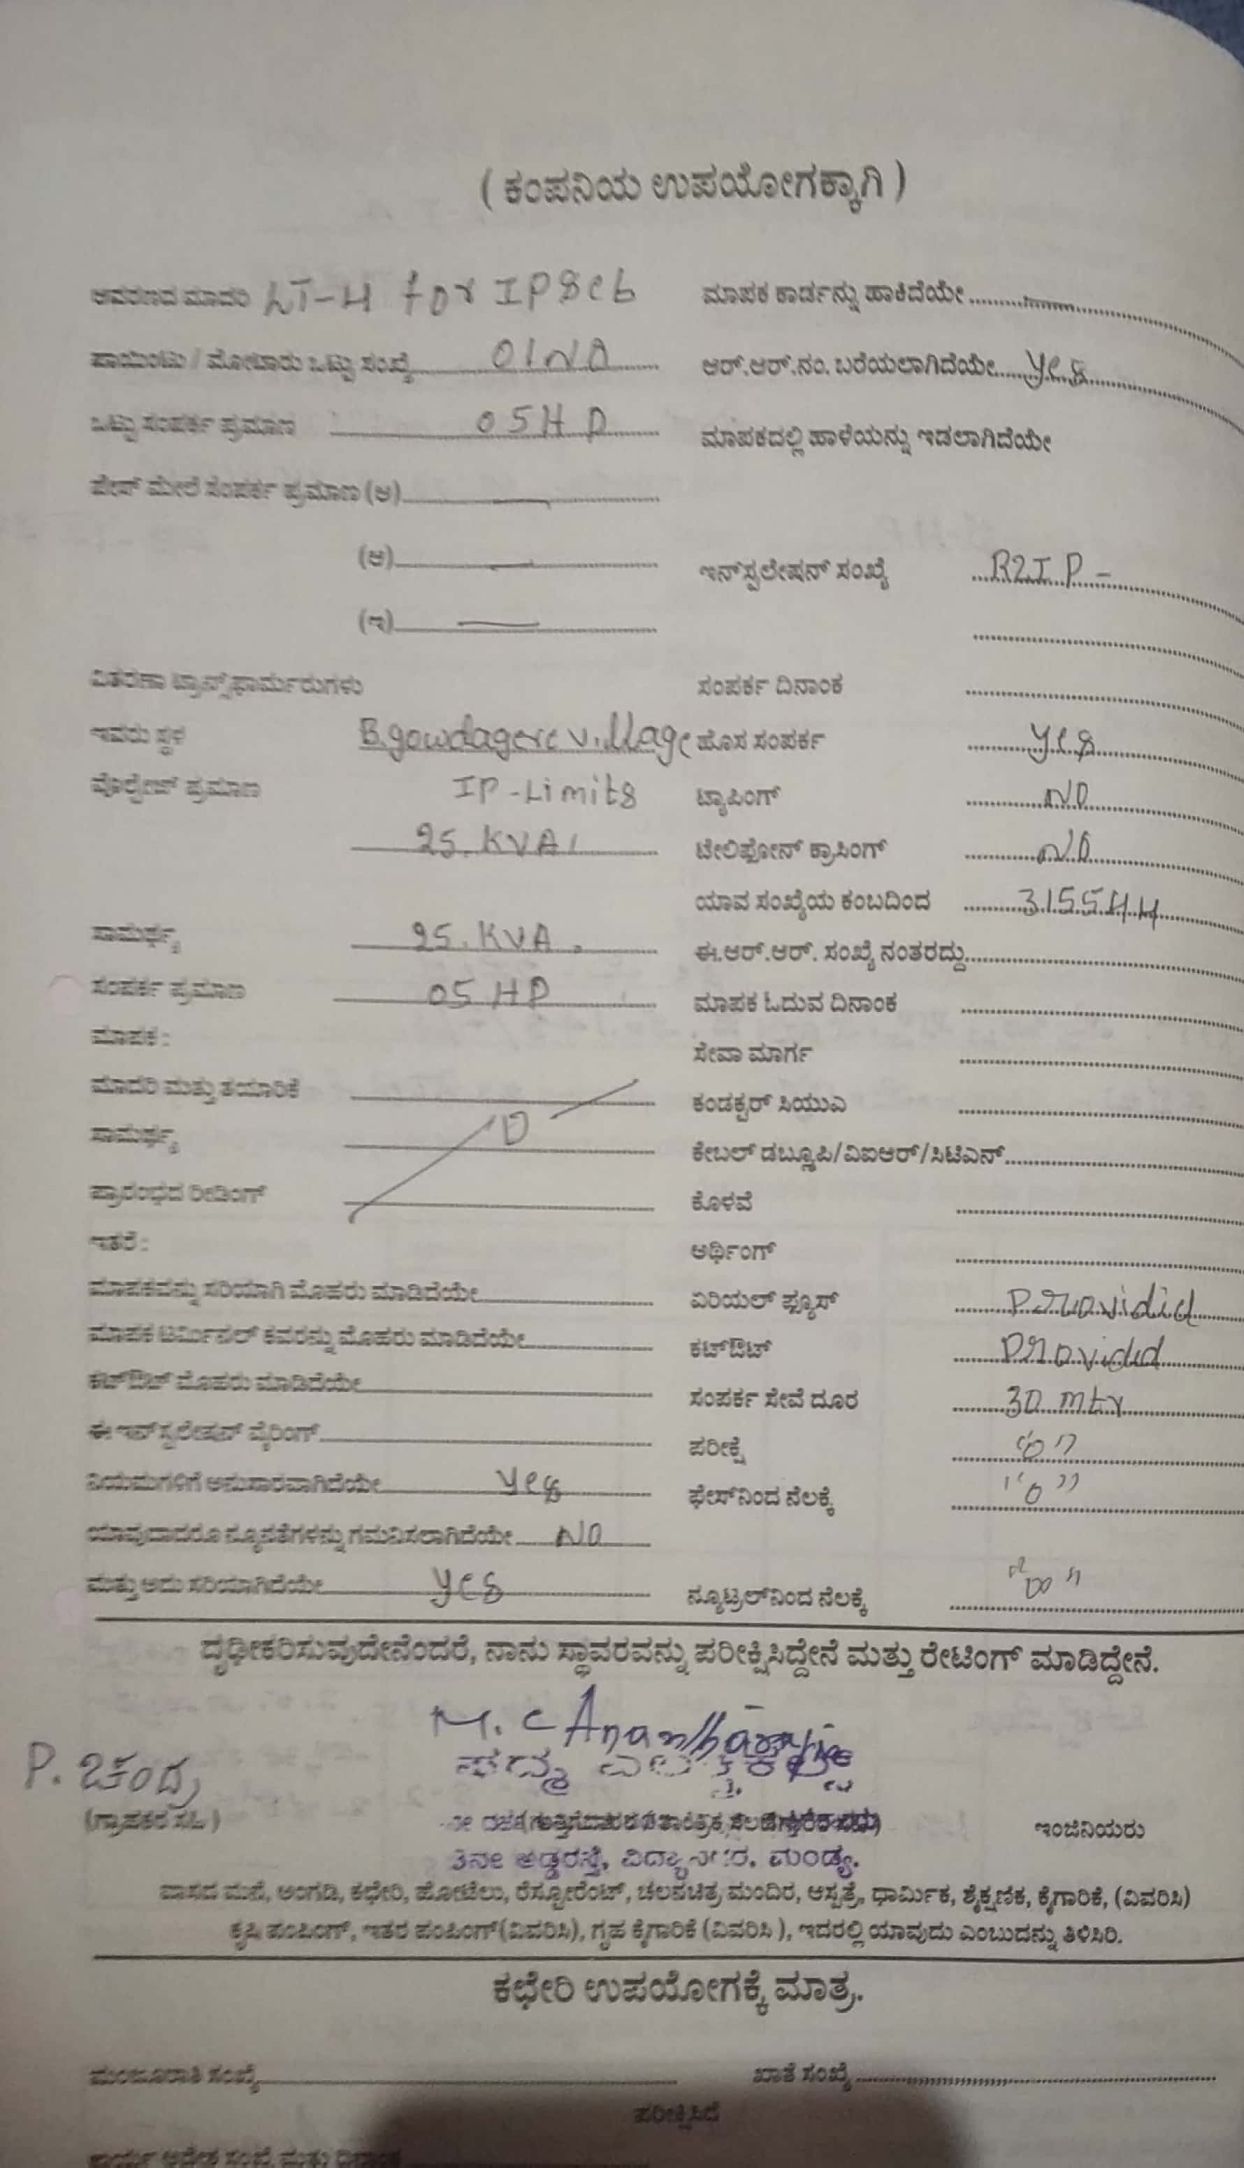 ( ಕಂಪನಿಯ ಉಪಯೋಗಕ್ಕಾಗಿ )
ಆವರಣದ ಮಾದರಿ LT-4 for IPSeb ಮಾಪಕ ಕಾರ್ಡನ್ನು ಹಾಕಿದೆಯೇ
ಪಾಯಿಂಟು / ಮೋಟಾರು ಒಟ್ಟು ಸಂಖ್ಯೆ 01NO ಆರ್.ಆರ್.ನಂ. ಬರೆಯಲಾಗಿದೆಯೇ yes
ಒಟ್ಟು ಸಂಪರ್ಕ ಪ್ರಮಾಣ 05HP ಮಾಪಕದಲ್ಲಿ ಹಾಳೆಯನ್ನು ಇಡಲಾಗಿದೆಯೇ
ಫೇಸ್ ಮೇಲೆ ಸಂಪರ್ಕ ಪ್ರಮಾಣ (ಅ)
(ಆ) ಇನ್‌ಸ್ಟಲೇಷನ್ ಸಂಖ್ಯೆ R2IP -
(ಇ)
ವಿತರಣಾ ಟ್ರಾನ್ಸ್‌ಫಾರ್ಮರುಗಳು ಸಂಪರ್ಕ ದಿನಾಂಕ
ಇವರು ಸ್ಥಳ B.gowdagere village ಹೊಸ ಸಂಪರ್ಕ yes
ವೊಲ್ಟೇಜ್ ಪ್ರಮಾಣ IP-Limits ಟ್ಯಾಪಿಂಗ್ NO
25.KVA ಟೇಲಿಫೋನ್ ಕ್ರಾಸಿಂಗ್ NO
ಯಾವ ಸಂಖ್ಯೆಯ ಕಂಬದಿಂದ 315544
ಸಾಮರ್ಥ್ಯ 25.KVA. ಈ.ಆರ್.ಆರ್. ಸಂಖ್ಯೆ ನಂತರದ್ದು
ಸಂಪರ್ಕ ಪ್ರಮಾಣ 05 HP ಮಾಪಕ ಓದುವ ದಿನಾಂಕ
ಮಾಪಕ : ಸೇವಾ ಮಾರ್ಗ
ಮಾದರಿ ಮತ್ತು ತಯಾರಿಕೆ ಕಂಡಕ್ಟರ್ ಸಿಯುಎ
ಸಾಮರ್ಥ್ಯ ಕೇಬಲ್ ಡಬ್ಲ್ಯೂಪಿ/ವಿಐಆರ್/ಸಿಟಿಎನ್
ಪ್ರಾರಂಭದ ರೀಡಿಂಗ್ ಕೊಳವೆ
ಇತರೆ : ಅರ್ಥಿಂಗ್
ಮಾಪಕವನ್ನು ಸರಿಯಾಗಿ ಮೊಹರು ಮಾಡಿದೆಯೇ ಏರಿಯಲ್ ಫ್ಯೂಸ್ Provided
ಮಾಪಕ ಟರ್ಮಿನಲ್ ಕವರನ್ನು ಮೊಹರು ಮಾಡಿದೆಯೇ ಕಟ್‌ಔಟ್ Provided
ಕಟ್‌ಔಟ್ ಮೊಹರು ಮಾಡಿದೆಯೇ ಸಂಪರ್ಕ ಸೇವೆ ದೂರ 30 mtr
ಈ ಇನ್‌ಸ್ಟಲೇಷನ್ ವೈರಿಂಗ್ ಪರೀಕ್ಷೆ "0"
ನಿಯಮಗಳಿಗೆ ಅನುಸಾರವಾಗಿದೆಯೇ yes ಫೇಸ್‌ನಿಂದ ನೆಲಕ್ಕೆ "0"
ಯಾವುದಾದರೂ ನ್ಯೂನತೆಗಳನ್ನು ಗಮನಿಸಲಾಗಿದೆಯೇ NO
ಮತ್ತು ಅದು ಸರಿಯಾಗಿದೆಯೇ yes ನ್ಯೂಟ್ರಲ್‌ನಿಂದ ನೆಲಕ್ಕೆ
ದೃಢೀಕರಿಸುವುದೇನೆಂದರೆ, ನಾನು ಸ್ಥಾವರವನ್ನು ಪರೀಕ್ಷಿಸಿದ್ದೇನೆ ಮತ್ತು ರೇಟಿಂಗ್ ಮಾಡಿದ್ದೇನೆ.
M. C Anantharaju
P. ಚಂದ್ರ ಪದ್ಮ
(ಗ್ರಾಹಕರ ಸಹಿ) ಇಂಜಿನಿಯರು
3ನೇ ಅಡ್ಡರಸ್ತೆ, ವಿದ್ಯಾನಗರ, ಮಂಡ್ಯ.
ವಾಸದ ಮನೆ, ಅಂಗಡಿ, ಕಛೇರಿ, ಹೋಟೆಲು, ರೆಸ್ಟೋರೆಂಟ್, ಚಲನಚಿತ್ರ ಮಂದಿರ, ಆಸ್ಪತ್ರೆ, ಧಾರ್ಮಿಕ, ಶೈಕ್ಷಣಿಕ, ಕೈಗಾರಿಕೆ, (ವಿವರಿಸಿ)
ಕೃಷಿ ಪಂಪಿಂಗ್, ಇತರ ಪಂಪಿಂಗ್(ವಿವರಿಸಿ), ಗೃಹ ಕೈಗಾರಿಕೆ (ವಿವರಿಸಿ ), ಇದರಲ್ಲಿ ಯಾವುದು ಎಂಬುದನ್ನು ತಿಳಿಸಿರಿ.
ಕಛೇರಿ ಉಪಯೋಗಕ್ಕೆ ಮಾತ್ರ.
ಮಂಜೂರಾತಿ ಸಂಖ್ಯೆ ಖಾತೆ ಸಂಖ್ಯೆ
ಪರೀಕ್ಷಿಸಿದೆ